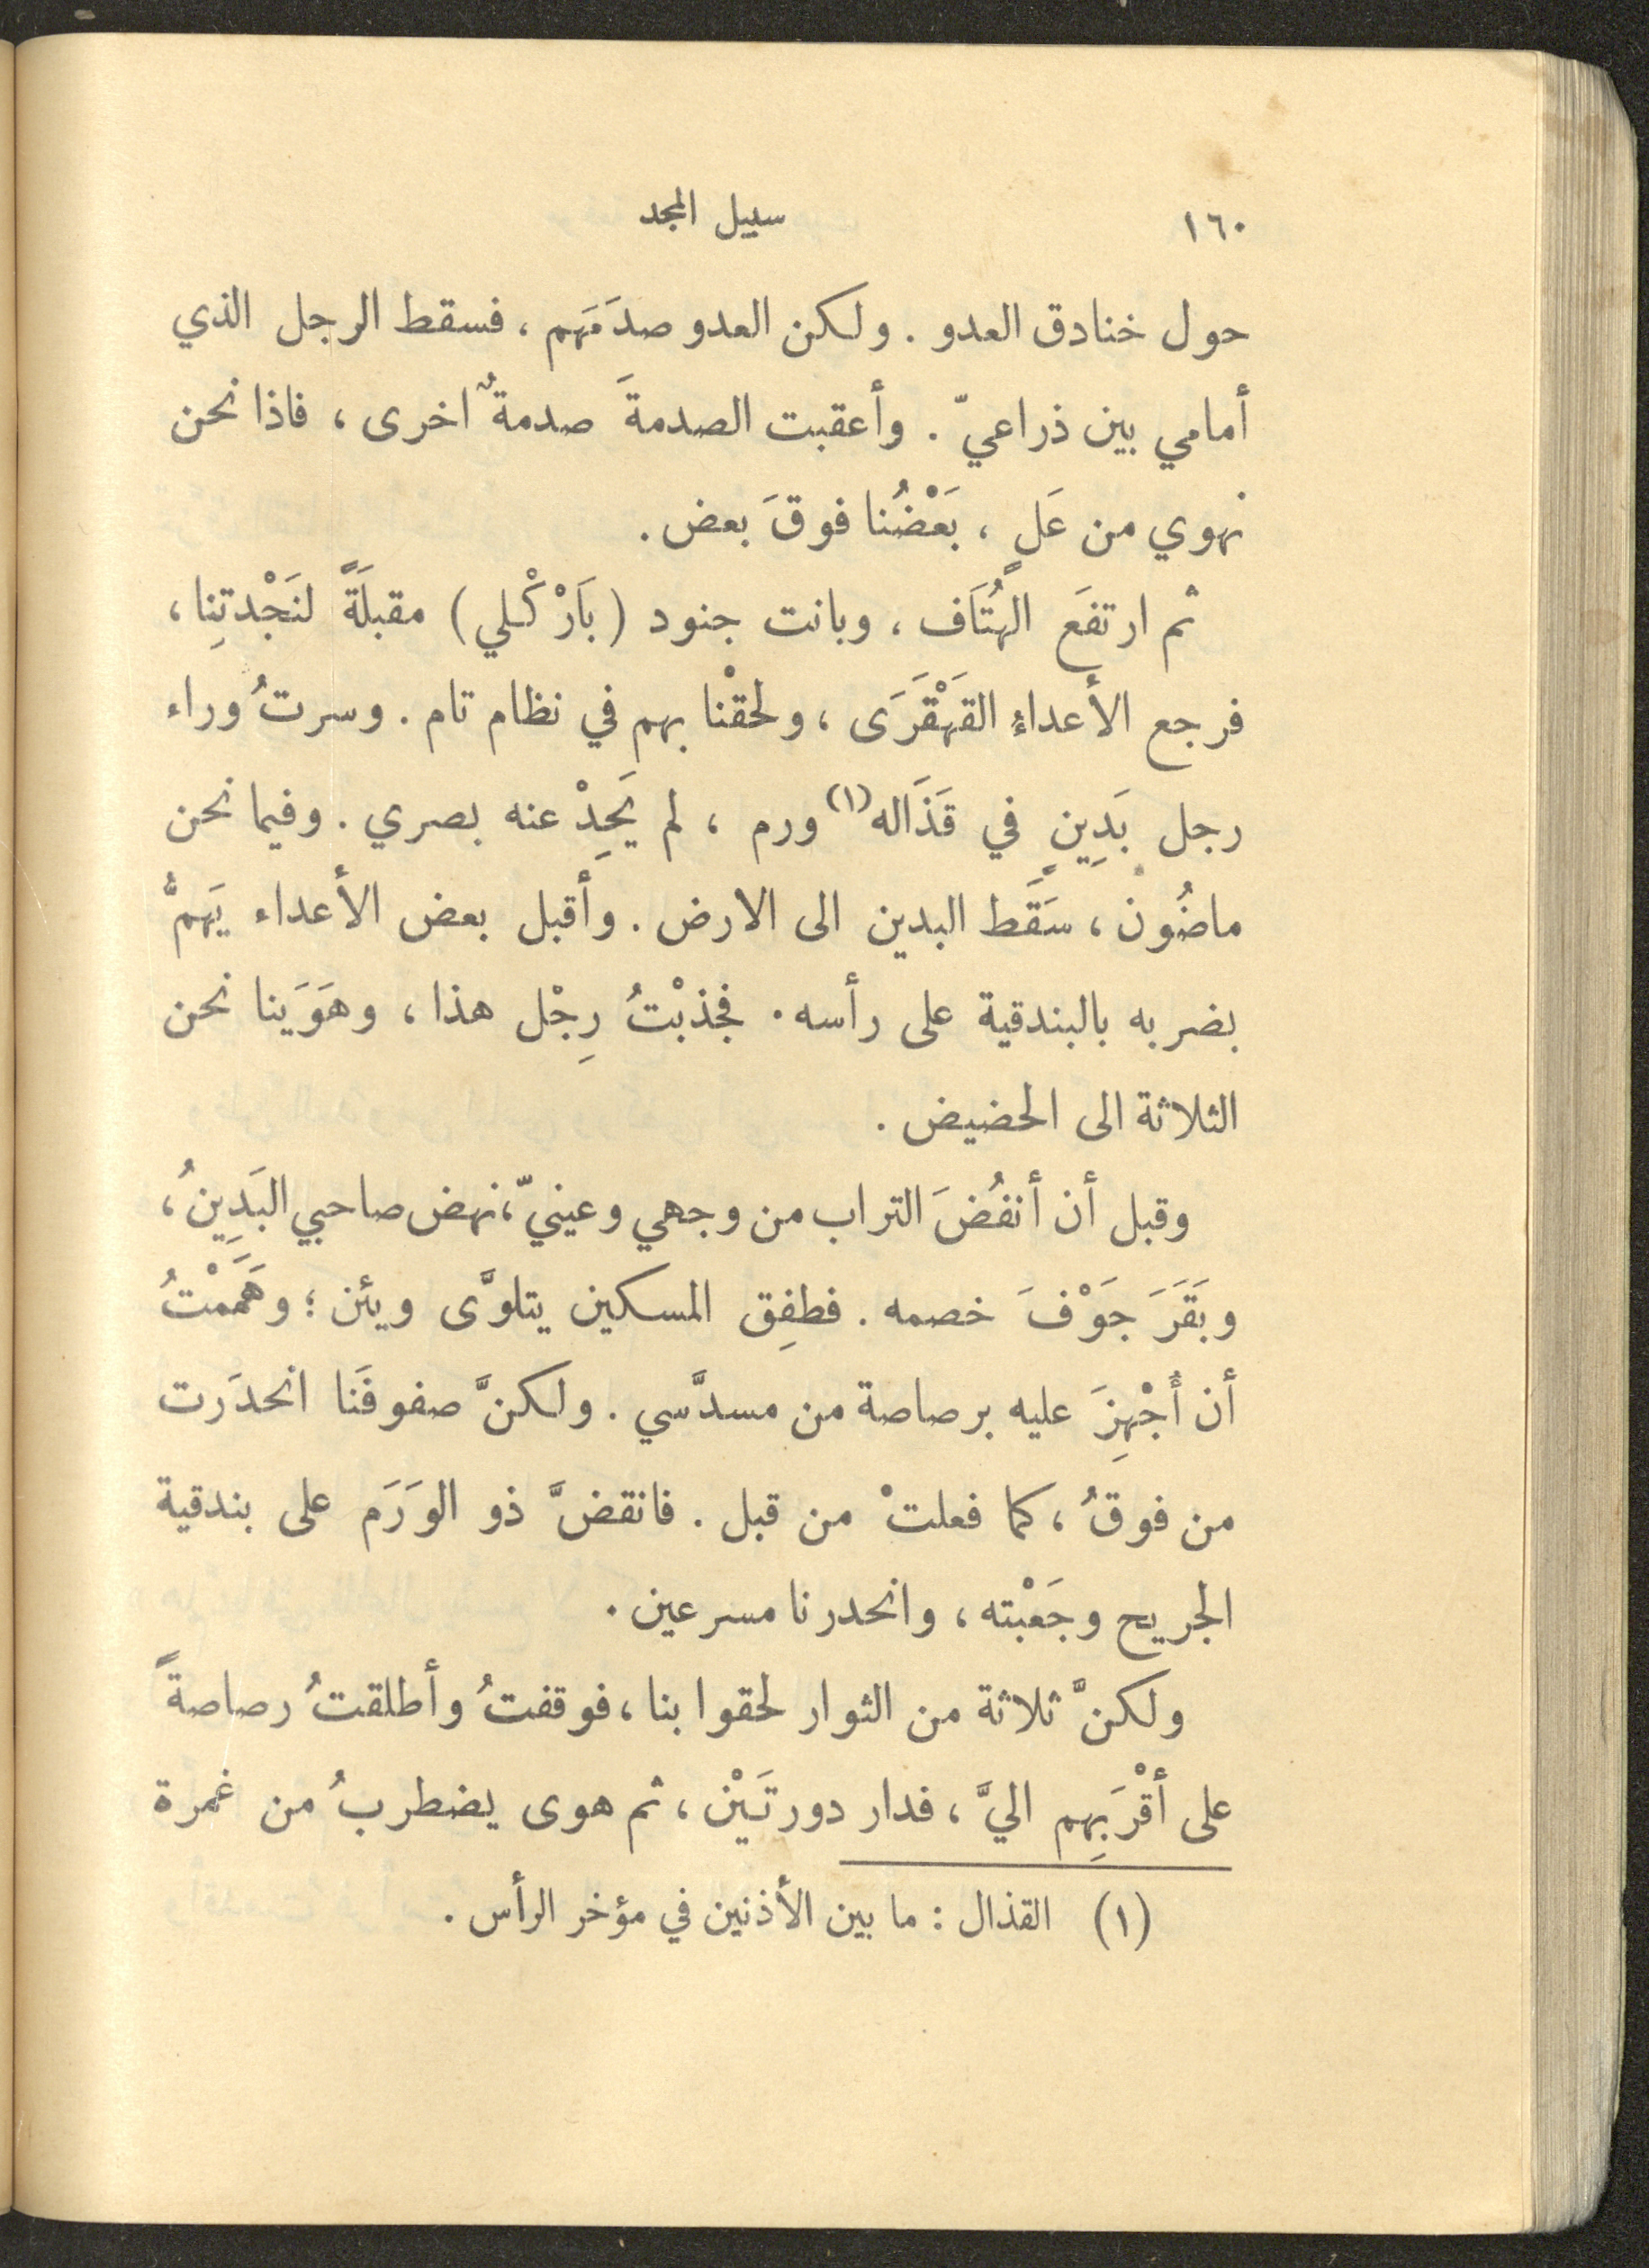 ١٦٠ سبيل المجد
حول خنادق العدو . ولكن العدو صدَمَهم ، فسقط الرجل الذي
أمامي بين ذراعيّ . وأعقبت الصدمةَ صدمةٌ اخرى ، فاذا نحن
نهوي من عَلٍ ، بَعْضُنا فوقَ بعض .
ثم ارتفعَ الهُتَاف ، وبانت جنود (بَارْكْلي) مقبلَةً لنَجْدتِنا ،
فرجع الأعداء القَهْقَرَى ، ولحقْنا بهم في نظام تام . وسرتُ وراء
رجل بَدِينٍ في قَذَاله(١) ورم ، لم يَحِدْ عنه بصري . وفيما نحن
ماضُون ، سَقَط البدين الى الارض . وأقبل بعض الأعداء يَهمُّ
بضربه بالبندقية على رأسه . فجذبْتُ رِجْل هذا ، وهَوَينا نحن
الثلاثة الى الحضيض .
وقبل أن أنفُضَ التراب من وجهي وعينيّ ، نهض صاحبي البَدِينُ ،
وبَقَرَ جَوْفَ خصمه . فطفِق المسكين يتلوَّى ويئن ؛ وهَمَمْتُ
أن أُجْهِزَ عليه برصاصة من مسدَّسي . ولكنَّ صفوفَنا انحدَرت
من فوقُ ، كما فعلتْ من قبل . فانقضَّ ذو الوَرَم على بندقية
الجريح وجَعْبْته ، وانحدرنا مسرعين .
ولكنَّ ثلاثة من الثوار لحقوا بنا ، فوقفتُ وأطلقتُ رصاصةً
على أقْرَبِهم اليَّ ، فدار دورتَيْن ، ثم هوى يضطربُ من غمرة
(١) القذال : ما بين الأذنين في مؤخر الرأس .